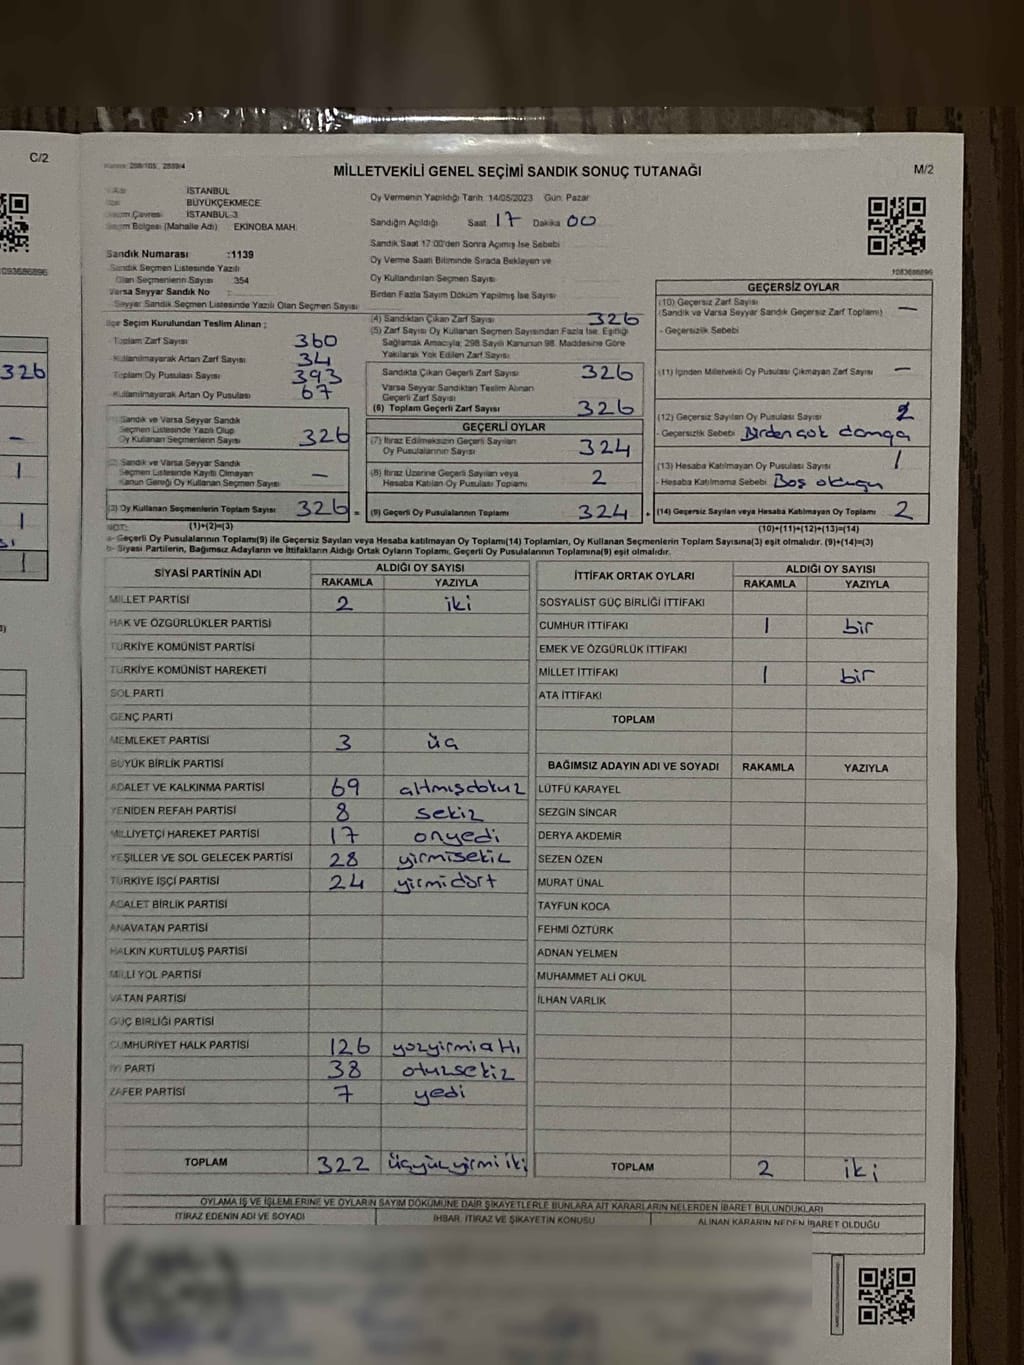 C/2
MİLLETVEKİLİ GENEL SEÇİMİ SANDIK SONUÇ TUTANAĞI
M/2
298/105, 2839/4
İSTANBUL
BÜYÜKÇEKMECE
Seçim Çevresi : İSTANBUL-3
Seçim Bölgesi (Mahalle Adı) EKİNOBA MAH.
Sandık Numarası :1139
Sandık Seçmen Listesinde Yazılı
Olan Seçmenlerin Sayısı : 354
Varsa Seyyar Sandık No :
Seyyar Sandık Seçmen Listesinde Yazılı Olan Seçmen Sayısı
Oy Vermenin Yapıldığı Tarih 14/05/2023 Gün: Pazar
Sandığın Açıldığı Saat 17 Dakika 00
Sandık Saat 17:00'den Sonra Açımış İse Sebebi
Oy Verme Saati Bitiminde Sırada Bekleyen ve
Oy Kullandırılan Seçmen Sayısı
Birden Fazla Sayım Döküm Yapılmış İse Sayısı
1093686896
1083686896
İlçe Seçim Kurulundan Teslim Alınan ;
Toplam Zarf Sayısı 360
Kullanılmayarak Artan Zarf Sayısı 34
Toplam Oy Pusulası Sayısı 393
Kullanılmayarak Artan Oy Pusulası 67
(1) Sandık ve Varsa Seyyar Sandık
Seçmen Listesinde Yazılı Olup
Oy Kullanan Seçmenlerin Sayısı 326
(2) Sandık ve Varsa Seyyar Sandık
Seçmen Listesinde Kayıtlı Olmayan
Kanun Gereği Oy Kullanan Seçmen Sayısı –
(3) Oy Kullanan Seçmenlerin Toplam Sayısı 326 =
(1)+(2)=(3)
(4) Sandıktan Çıkan Zarf Sayısı 326
(5) Zarf Sayısı Oy Kullanan Seçmen Sayısından Fazla İse, Eşitliği
Sağlamak Amacıyla; 298 Sayılı Kanunun 98. Maddesine Göre
Yakılarak Yok Edilen Zarf Sayısı
Sandıkta Çıkan Geçerli Zarf Sayısı 326
Varsa Seyyar Sandıktan Teslim Alınan
Geçerli Zarf Sayısı
(6) Toplam Geçerli Zarf Sayısı 326
GEÇERLİ OYLAR
(7) İtiraz Edilmeksizin Geçerli Sayılan
Oy Pusulalarının Sayısı 324
(8) İtiraz Üzerine Geçerli Sayılan veya
Hesaba Katılan Oy Pusulası Toplamı 2
(9) Geçerli Oy Pusulalarının Toplamı 324 +
GEÇERSİZ OYLAR
(10) Geçersiz Zarf Sayısı
(Sandık ve Varsa Seyyar Sandık Geçersiz Zarf Toplamı) –
- Geçersizlik Sebebi
(11) İçinden Milletvekili Oy Pusulası Çıkmayan Zarf Sayısı –
(12) Geçersiz Sayılan Oy Pusulası Sayısı 2
- Geçersizlik Sebebi Birden çok damga
(13) Hesaba Katılmayan Oy Pusulası Sayısı 1
- Hesaba Katılmama Sebebi Boş
(14) Geçersiz Sayılan veya Hesaba Katılmayan Oy Toplamı 2
(10)+(11)+(12)+(13)=(14)
NOT:
a- Geçerli Oy Pusulalarının Toplamı(9) ile Geçersiz Sayılan veya Hesaba katılmayan Oy Toplamı(14) Toplamları, Oy Kullanan Seçmenlerin Toplam Sayısına(3) eşit olmalıdır. (9)+(14)=(3)
b- Siyasi Partilerin, Bağımsız Adayların ve İttifakların Aldığı Ortak Oyların Toplamı, Geçerli Oy Pusulalarının Toplamına(9) eşit olmalıdır.
SİYASİ PARTİNİN ADI ALDIĞI OY SAYISI
RAKAMLA YAZIYLA
MİLLET PARTİSİ 2 iki
HAK VE ÖZGÜRLÜKLER PARTİSİ
TÜRKİYE KOMÜNİST PARTİSİ
TÜRKİYE KOMÜNİST HAREKETİ
SOL PARTİ
GENÇ PARTİ
MEMLEKET PARTİSİ 3 üç
BÜYÜK BİRLİK PARTİSİ
ADALET VE KALKINMA PARTİSİ 69 altmışdokuz
YENİDEN REFAH PARTİSİ 8 sekiz
MİLLİYETÇİ HAREKET PARTİSİ 17 onyedi
YEŞİLLER VE SOL GELECEK PARTİSİ 28 yirmisekiz
TÜRKİYE İŞÇİ PARTİSİ 24 yirmidört
ADALET BİRLİK PARTİSİ
ANAVATAN PARTİSİ
HALKIN KURTULUŞ PARTİSİ
MİLLİ YOL PARTİSİ
VATAN PARTİSİ
GÜÇ BİRLİĞİ PARTİSİ
CUMHURİYET HALK PARTİSİ 126 yüzyirmialtı
İYİ PARTİ 38 otuzsekiz
ZAFER PARTİSİ 7 yedi
TOPLAM 322 üçyüzyirmiiki
İTTİFAK ORTAK OYLARI ALDIĞI OY SAYISI
RAKAMLA YAZIYLA
SOSYALİST GÜÇ BİRLİĞİ İTTİFAKI
CUMHUR İTTİFAKI 1 bir
EMEK VE ÖZGÜRLÜK İTTİFAKI
MİLLET İTTİFAKI 1 bir
ATA İTTİFAKI
TOPLAM
BAĞIMSIZ ADAYIN ADI VE SOYADI RAKAMLA YAZIYLA
LÜTFÜ KARAYEL
SEZGİN SİNCAR
DERYA AKDEMİR
SEZEN ÖZEN
MURAT ÜNAL
TAYFUN KOCA
FEHMİ ÖZTÜRK
ADNAN YELMEN
MUHAMMET ALİ OKUL
İLHAN VARLIK
TOPLAM 2 iki
OYLAMA İŞ VE İŞLEMLERİNE VE OYLARIN SAYIM DÖKÜMÜNE DAİR ŞİKAYETLERLE BUNLARA AİT KARARLARIN NELERDEN İBARET BULUNDUKLARI
İTİRAZ EDENİN ADI VE SOYADI İHBAR, İTİRAZ VE ŞİKAYETİN KONUSU ALINAN KARARIN NEDEN İBARET OLDUĞU
326
–
1
1
1